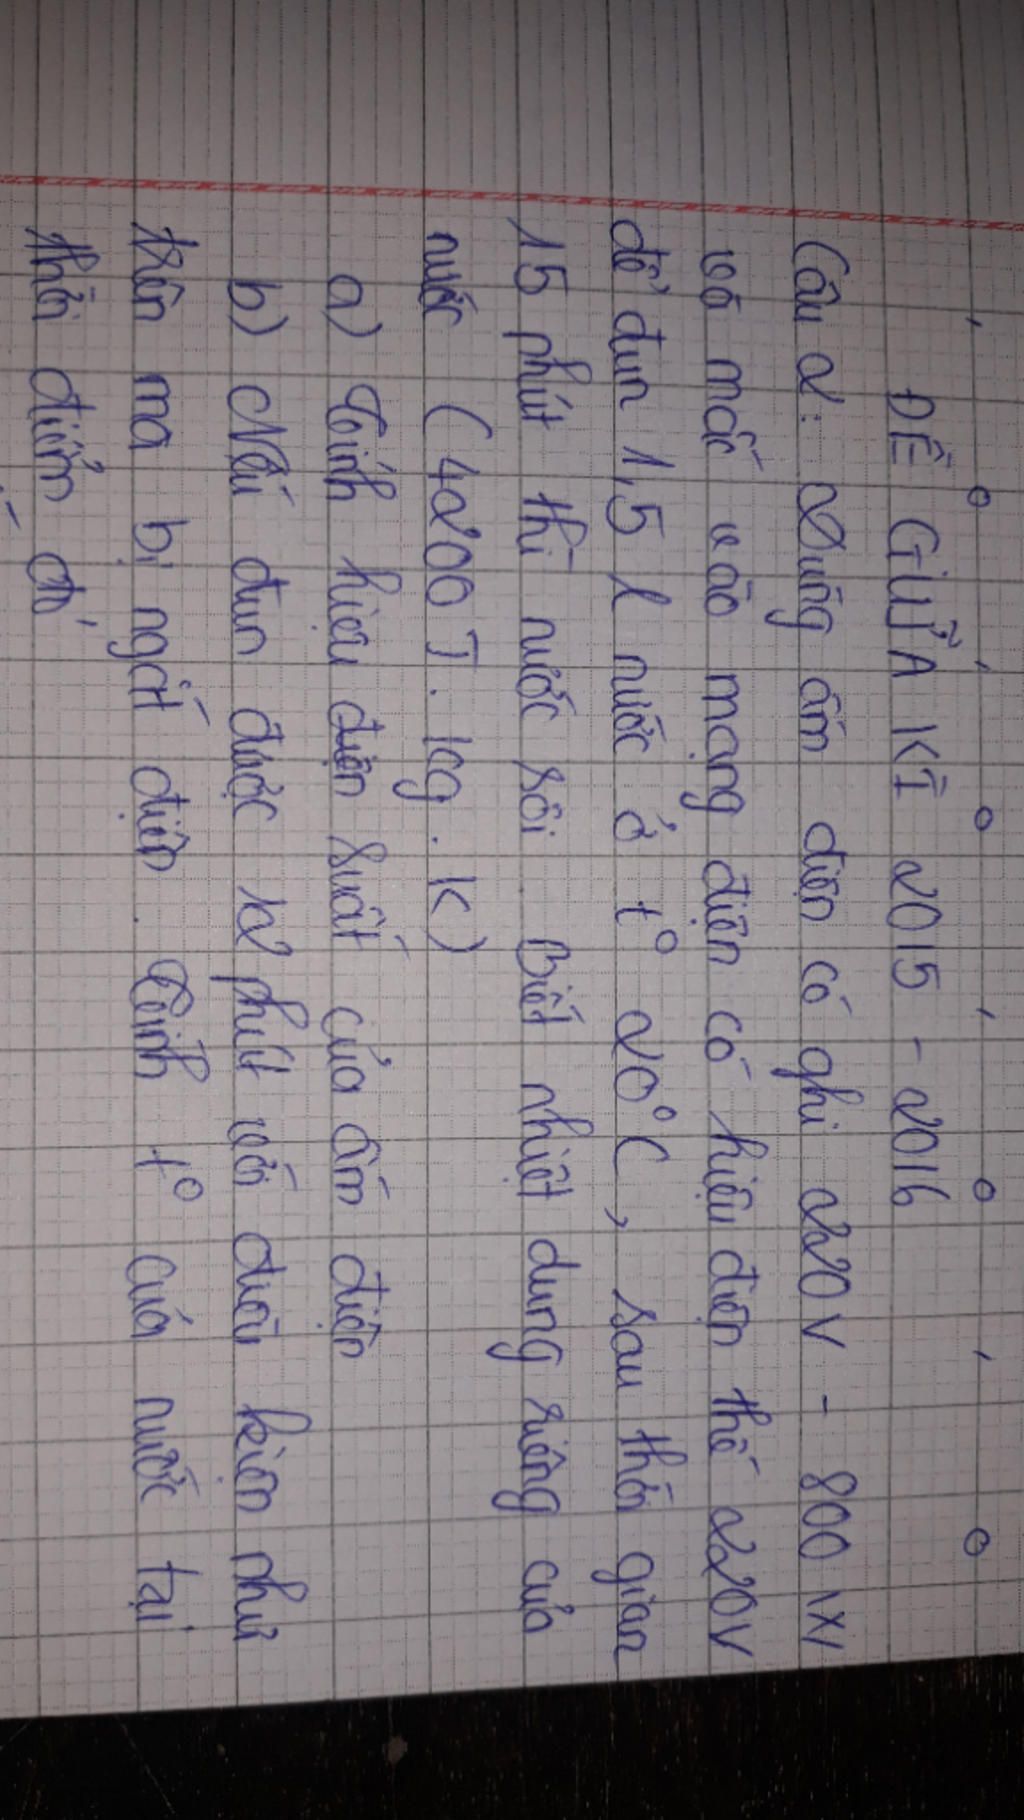 ĐỀ GIỮA KÌ 2015 - 2016
Câu 2: Dùng ấm điện có ghi 220V - 800W
và mắc vào mạng điện có hiệu điện thế 220V
để đun 1,5 l nước ở t° 20°C, sau thời gian
15 phút thì nước sôi. Biết nhiệt dung riêng của
nước (4200 J.kg.K)
a) Tính hiệu điện suất của ấm điện
b) Nếu đun được 12 phút với điều kiện như
trên mà bị ngắt điện. Tính t° của nước tại
thời điểm đó